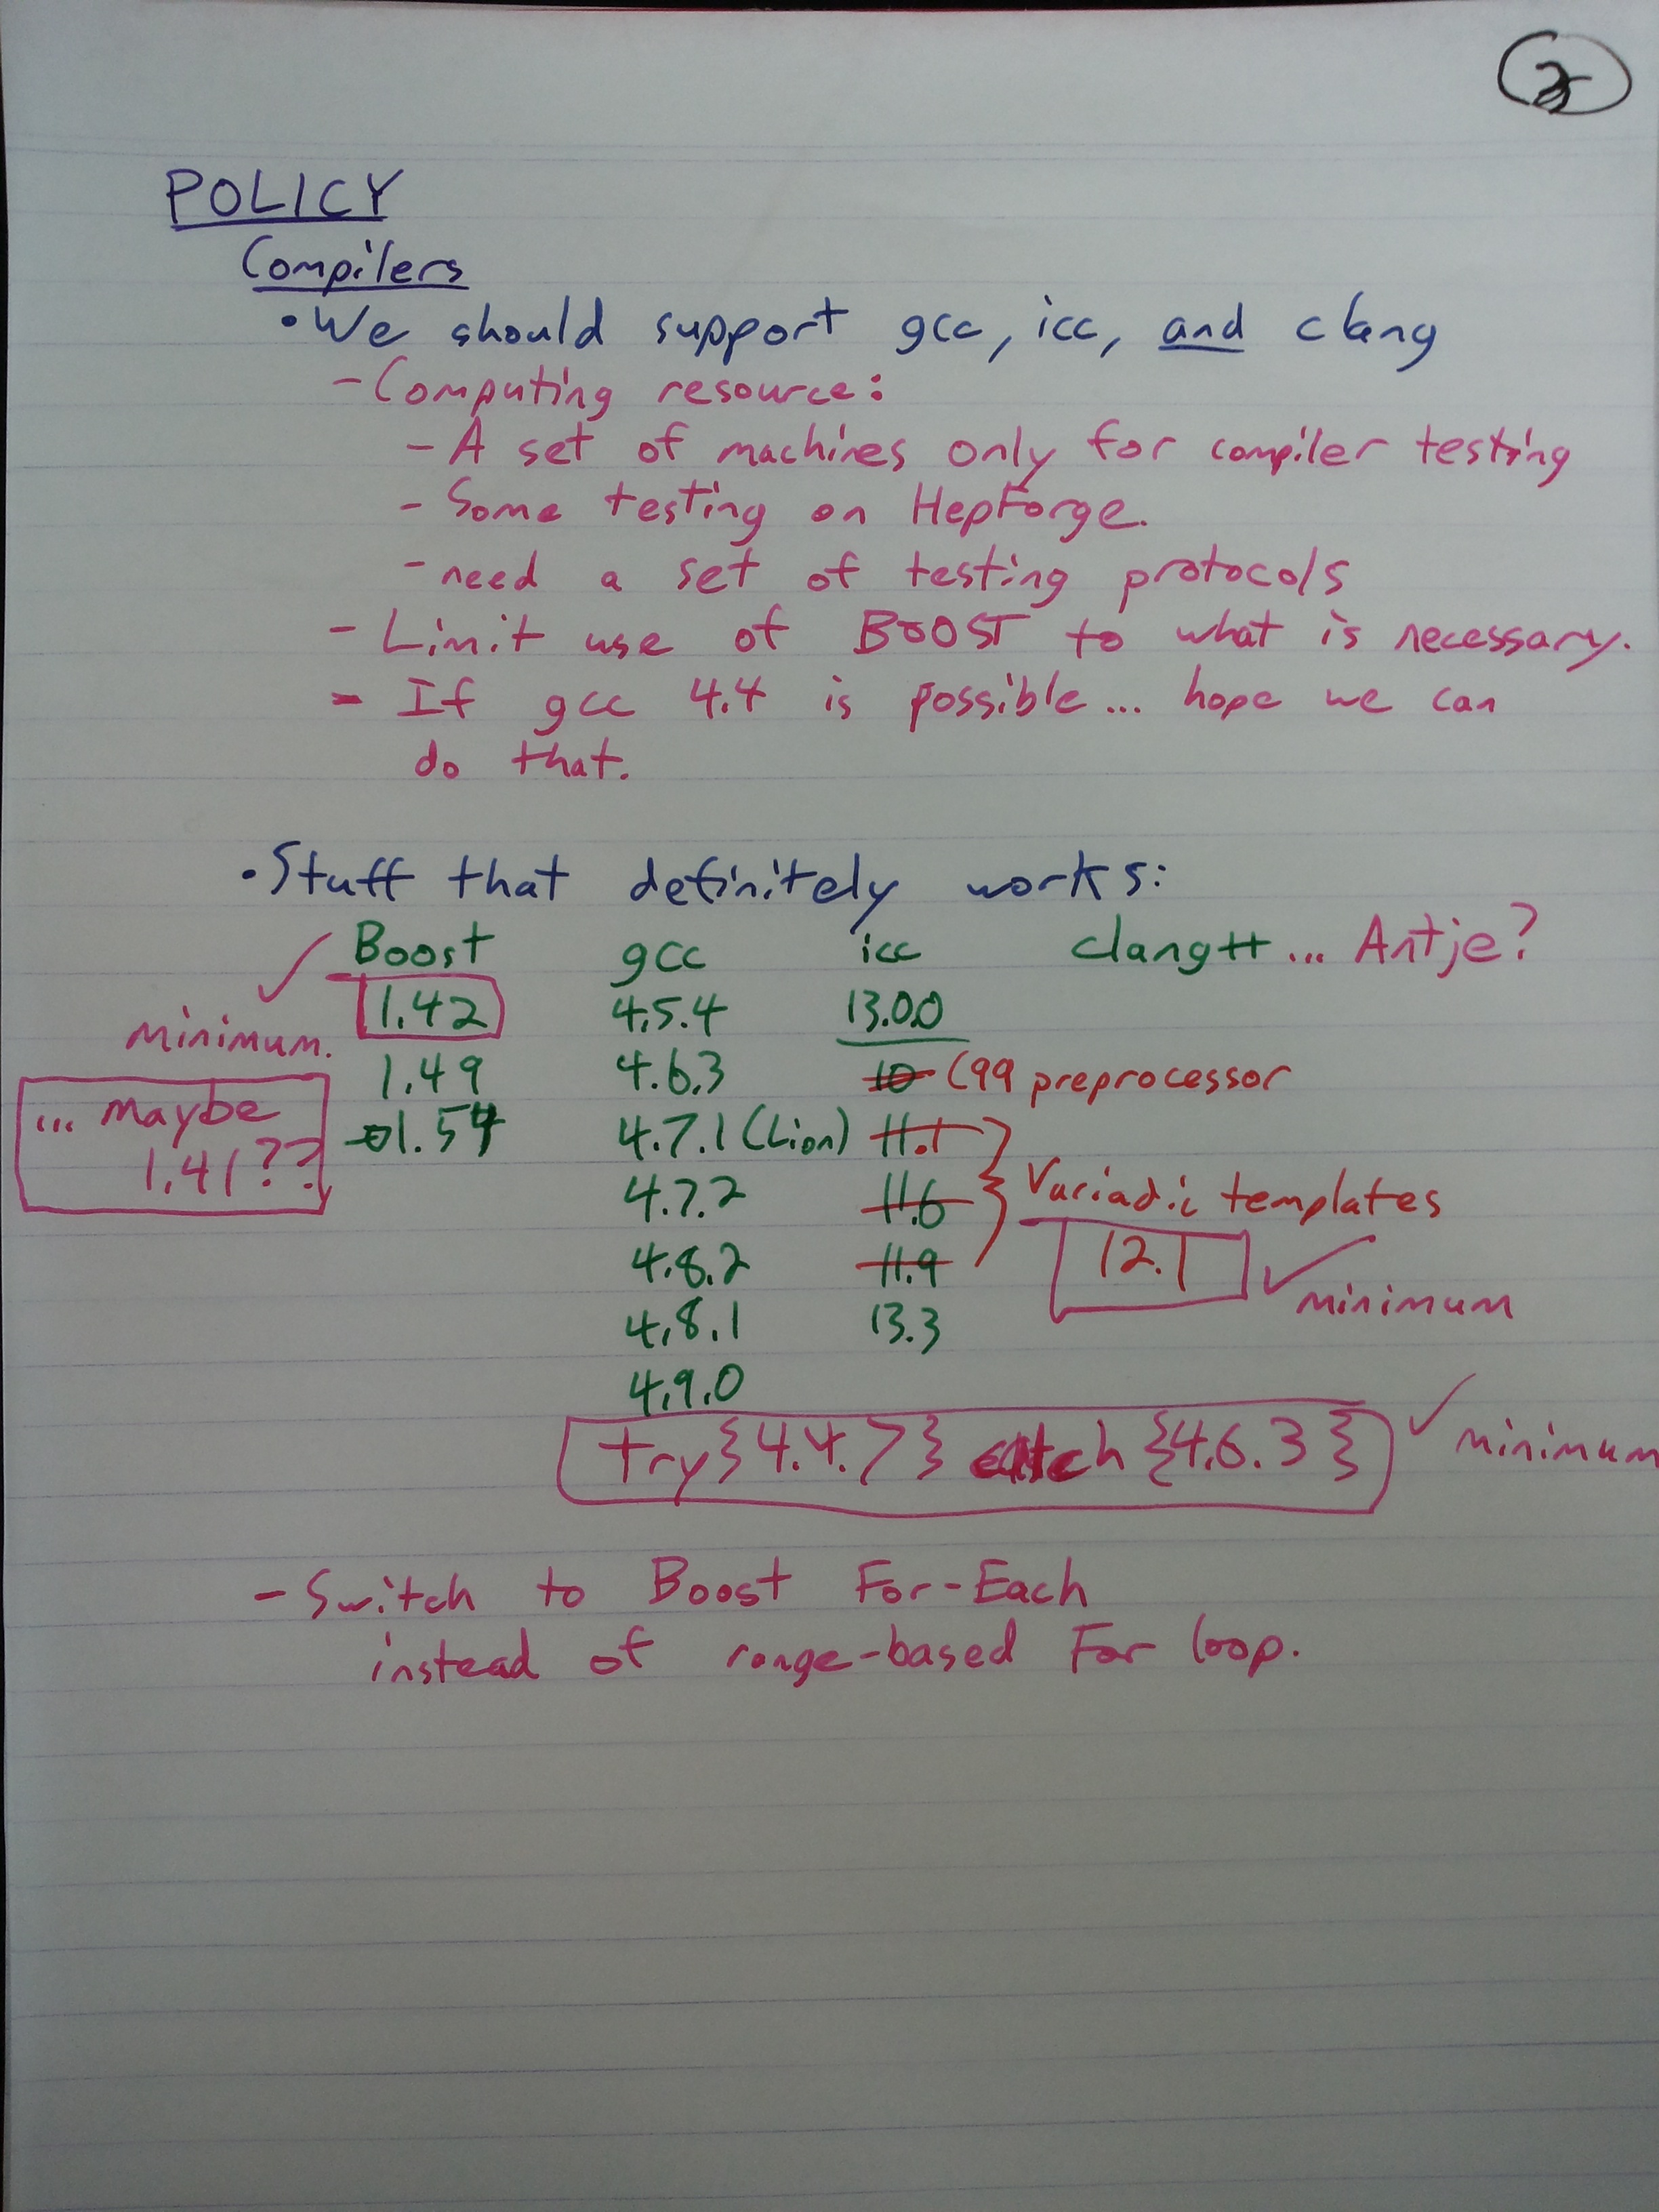 2
POLICY
Compilers
• We should support gcc, icc, and clang
- Computing resource:
- A set of machines only for compiler testing
- Some testing on HepForge.
- need a set of testing protocols
- Limit use of BOOST to what is necessary.
- If gcc 4.4 is possible... hope we can
do that.
• Stuff that definitely works:
Boost gcc icc clang++ ... Antje?
minimum. 1.42 4.5.4 13.0.0
1.49 4.6.3 10 C99 preprocessor
... maybe 1.54 4.7.1 (Lion) 11.1
1.41?? 4.7.2 11.6 Variadic templates
4.8.2 11.9 12.1 minimum
4.8.1 13.3
4.9.0
try{4.4.7} catch {4.6.3} minimum
- Switch to Boost For-Each
instead of range-based For loop.